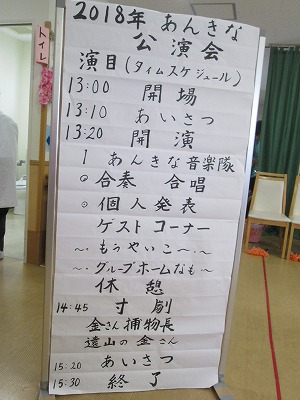 トイレ
2018年 あんきな
公演会
演目(タイムスケジュール)
13:00 開場
13:10 あいさつ
13:20 開演
1 あんきな音楽隊
◎合奏 合唱
◎個人発表
ゲストコーナー
〜・もうやいこ〜・〜
〜・グループホームなも・〜
休憩
14:45 寸劇
金さん捕物長
遠山の金さん
15:20 あいさつ
15:30 終了